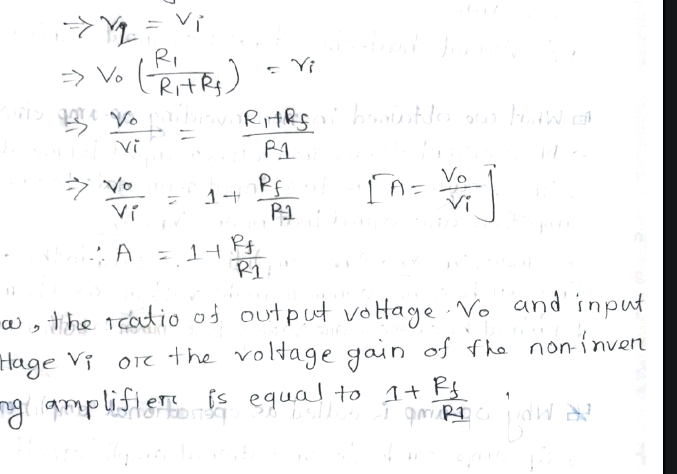 ⇒ V2 = Vi
⇒ Vo (R1/R1+Rf) = Vi
⇒ Vo/Vi = R1+Rf/R1
⇒ Vo/Vi = 1+ Rf/R1 [A = Vo/Vi]
∴ A = 1+ Rf/R1
, the ratio of output voltage Vo and input
ltage Vi or the voltage gain of the non-inver
ng amplifier is equal to 1+ Rf/R1 .